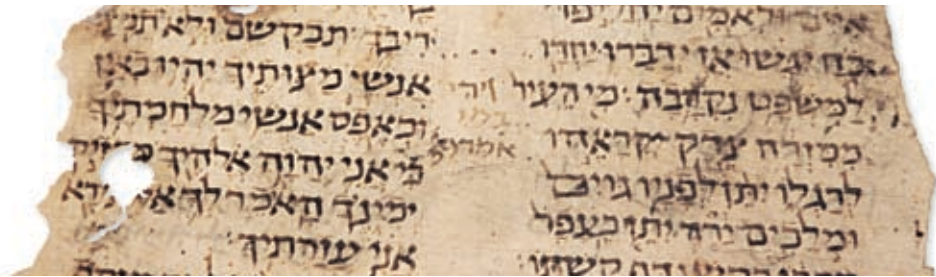 איים ולאמים יחליפו
כח יגשו אז ידברו יחדו
למשפט נקרבה מי העיר
ממזרח צדק יקראהו
לרגלו יתן לפניו גוים
ומלכים ירד יתן כעפר
קשתו
ריבך תבקשם ולא
אנשי מצותיך יהיו כאין
וכאפס אנשי מלחמתיך
כי אני יהוה אלהיך
ימינך האמר לך
אני עזרתיך